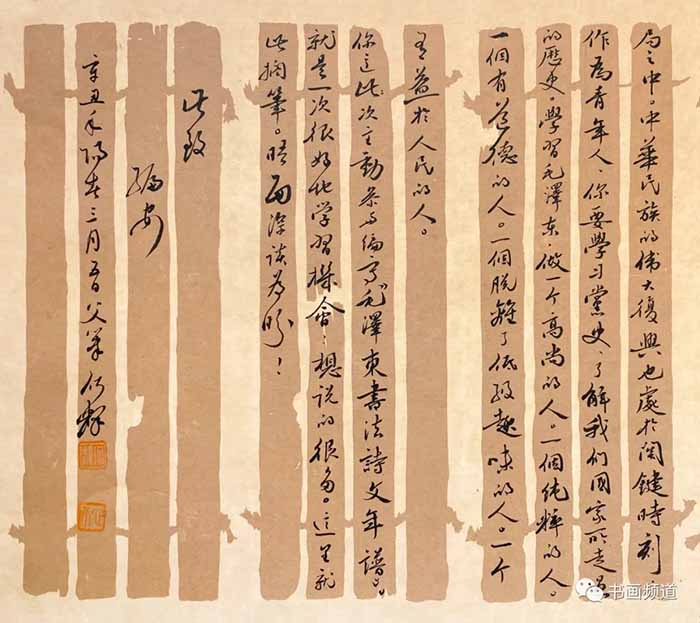 局之中。中華民族的伟大復興也處於関鍵時刻
作爲青年人、你要學习黨史、了解我们國家所走過
的歷史。學習毛澤东,做一个高尚的人。一個純粹的人。
一個有道德的人。一個脱離了低級趣味的人。一个
有益於人民的人。
你这次主動参与编写《毛澤東書法詩文年譜》。
就是一次很好地学習機會,想说的很多。这里就
此搁筆。晤面深谈为盼!
此致
编安
辛丑年陽春三月 父筆
书画频道